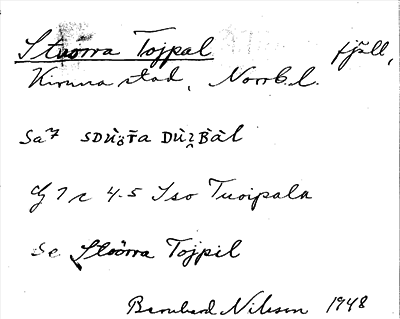 Stuorra Tojpal fjäll,
Kiruna stad, Norrb. l.
Sa 7
G 7 r 4-5 Iso Tuoipala
Se Stuorra Tojpil
Bernhard Nilsson 1948